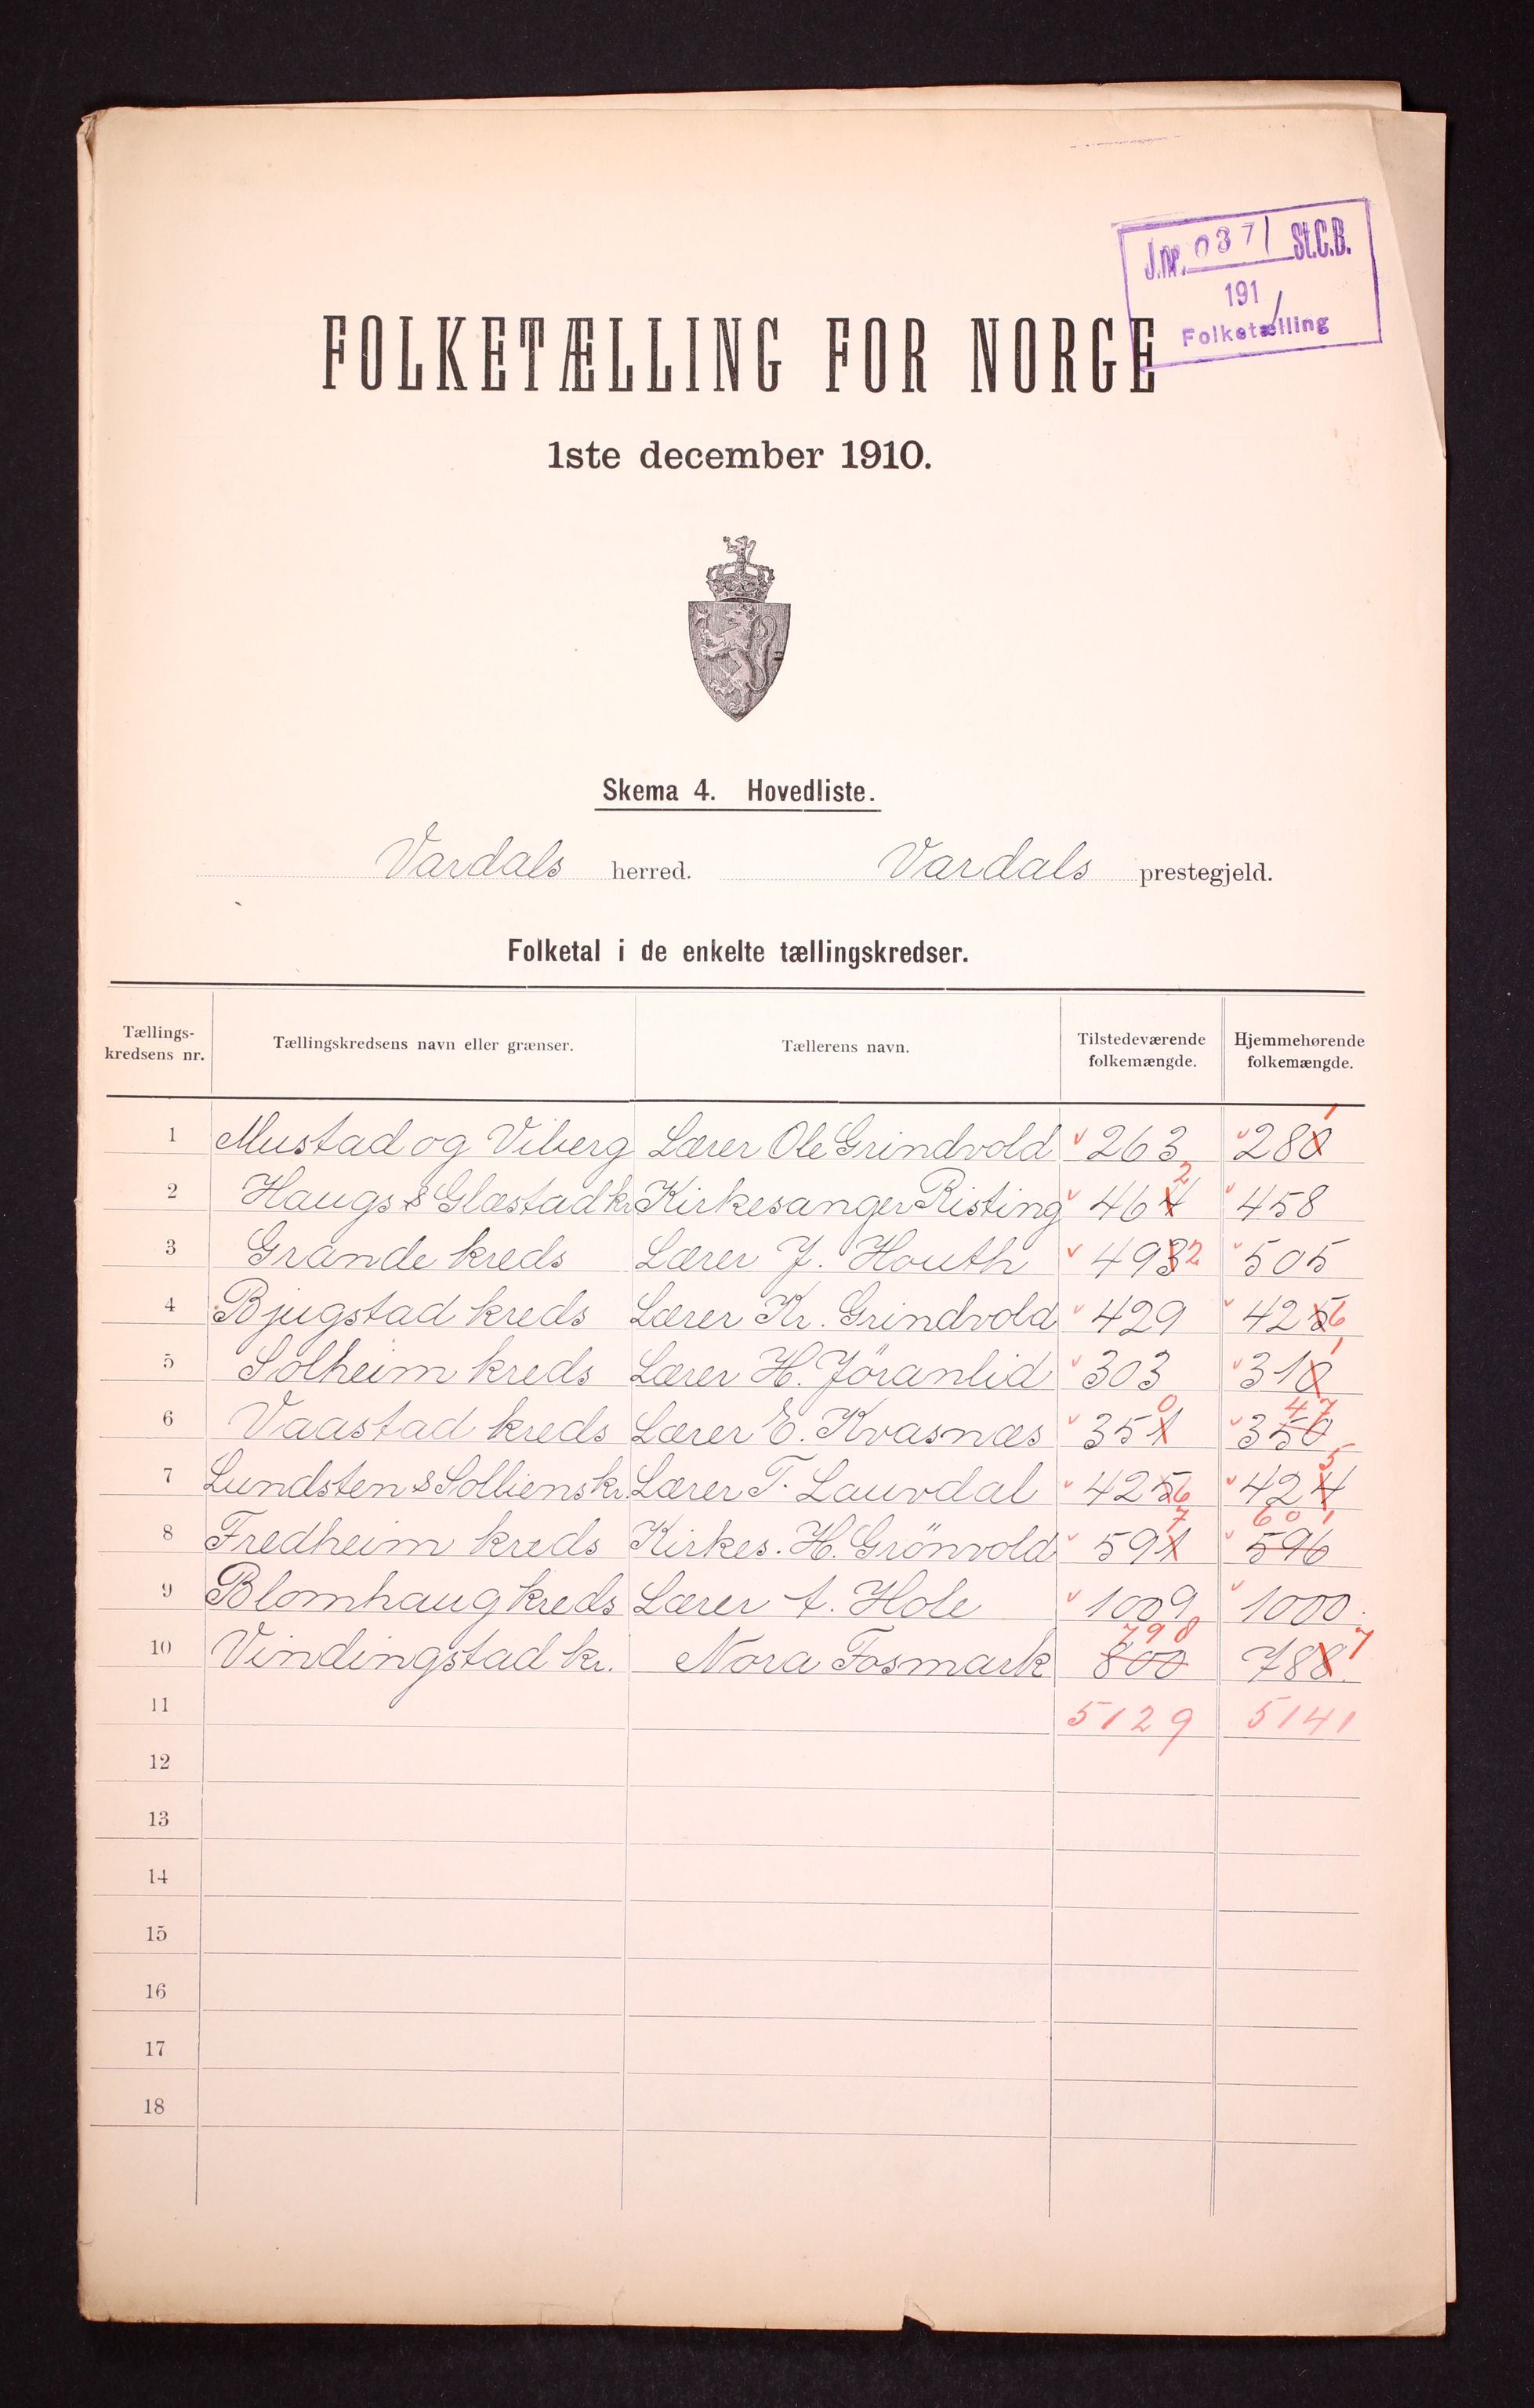 J.nr. 0371 St.C.B.
1911
Folketælling
FOLKETÆLLING FOR NORGE
1ste december 1910.
Skema 4. Hovedliste.
Vardals herred. Vardals prestegjeld.
Folketal i de enkelte tællingskredser.
Tællings-kredsens nr. Tællingskredsens navn eller grænser. Tællerens navn. Tilstedeværende folkemængde. Hjemmehørende folkemængde.
1 Mustad og Viberg Lærer Ole Grindvold 263 280 1
2 Haugs & Glæstad kr. Kirkesanger Risting 464 2 458
3 Grande kreds Lærer J. Houth 493 2 505
4 Bjugstad kreds Lærer Kr. Grindvold 429 425 6
5 Solheim kreds Lærer H. Jöranlid 303 310 1
6 Vaastad kreds Lærer E. Kvasnæs 351 0 350 47
7 Lundsten & Solliens kr. Lærer T. Lauvdal 425 6 424 5
8 Fredheim kreds Kirkes. H. Grönvold 591 7 596 601
9 Blomhaug kreds Lærer A. Hole 1009 1000
10 Vindingstad kr. Nora Fosmark 800 798 788 7
11 5129 5141
12
13
14
15
16
17
18